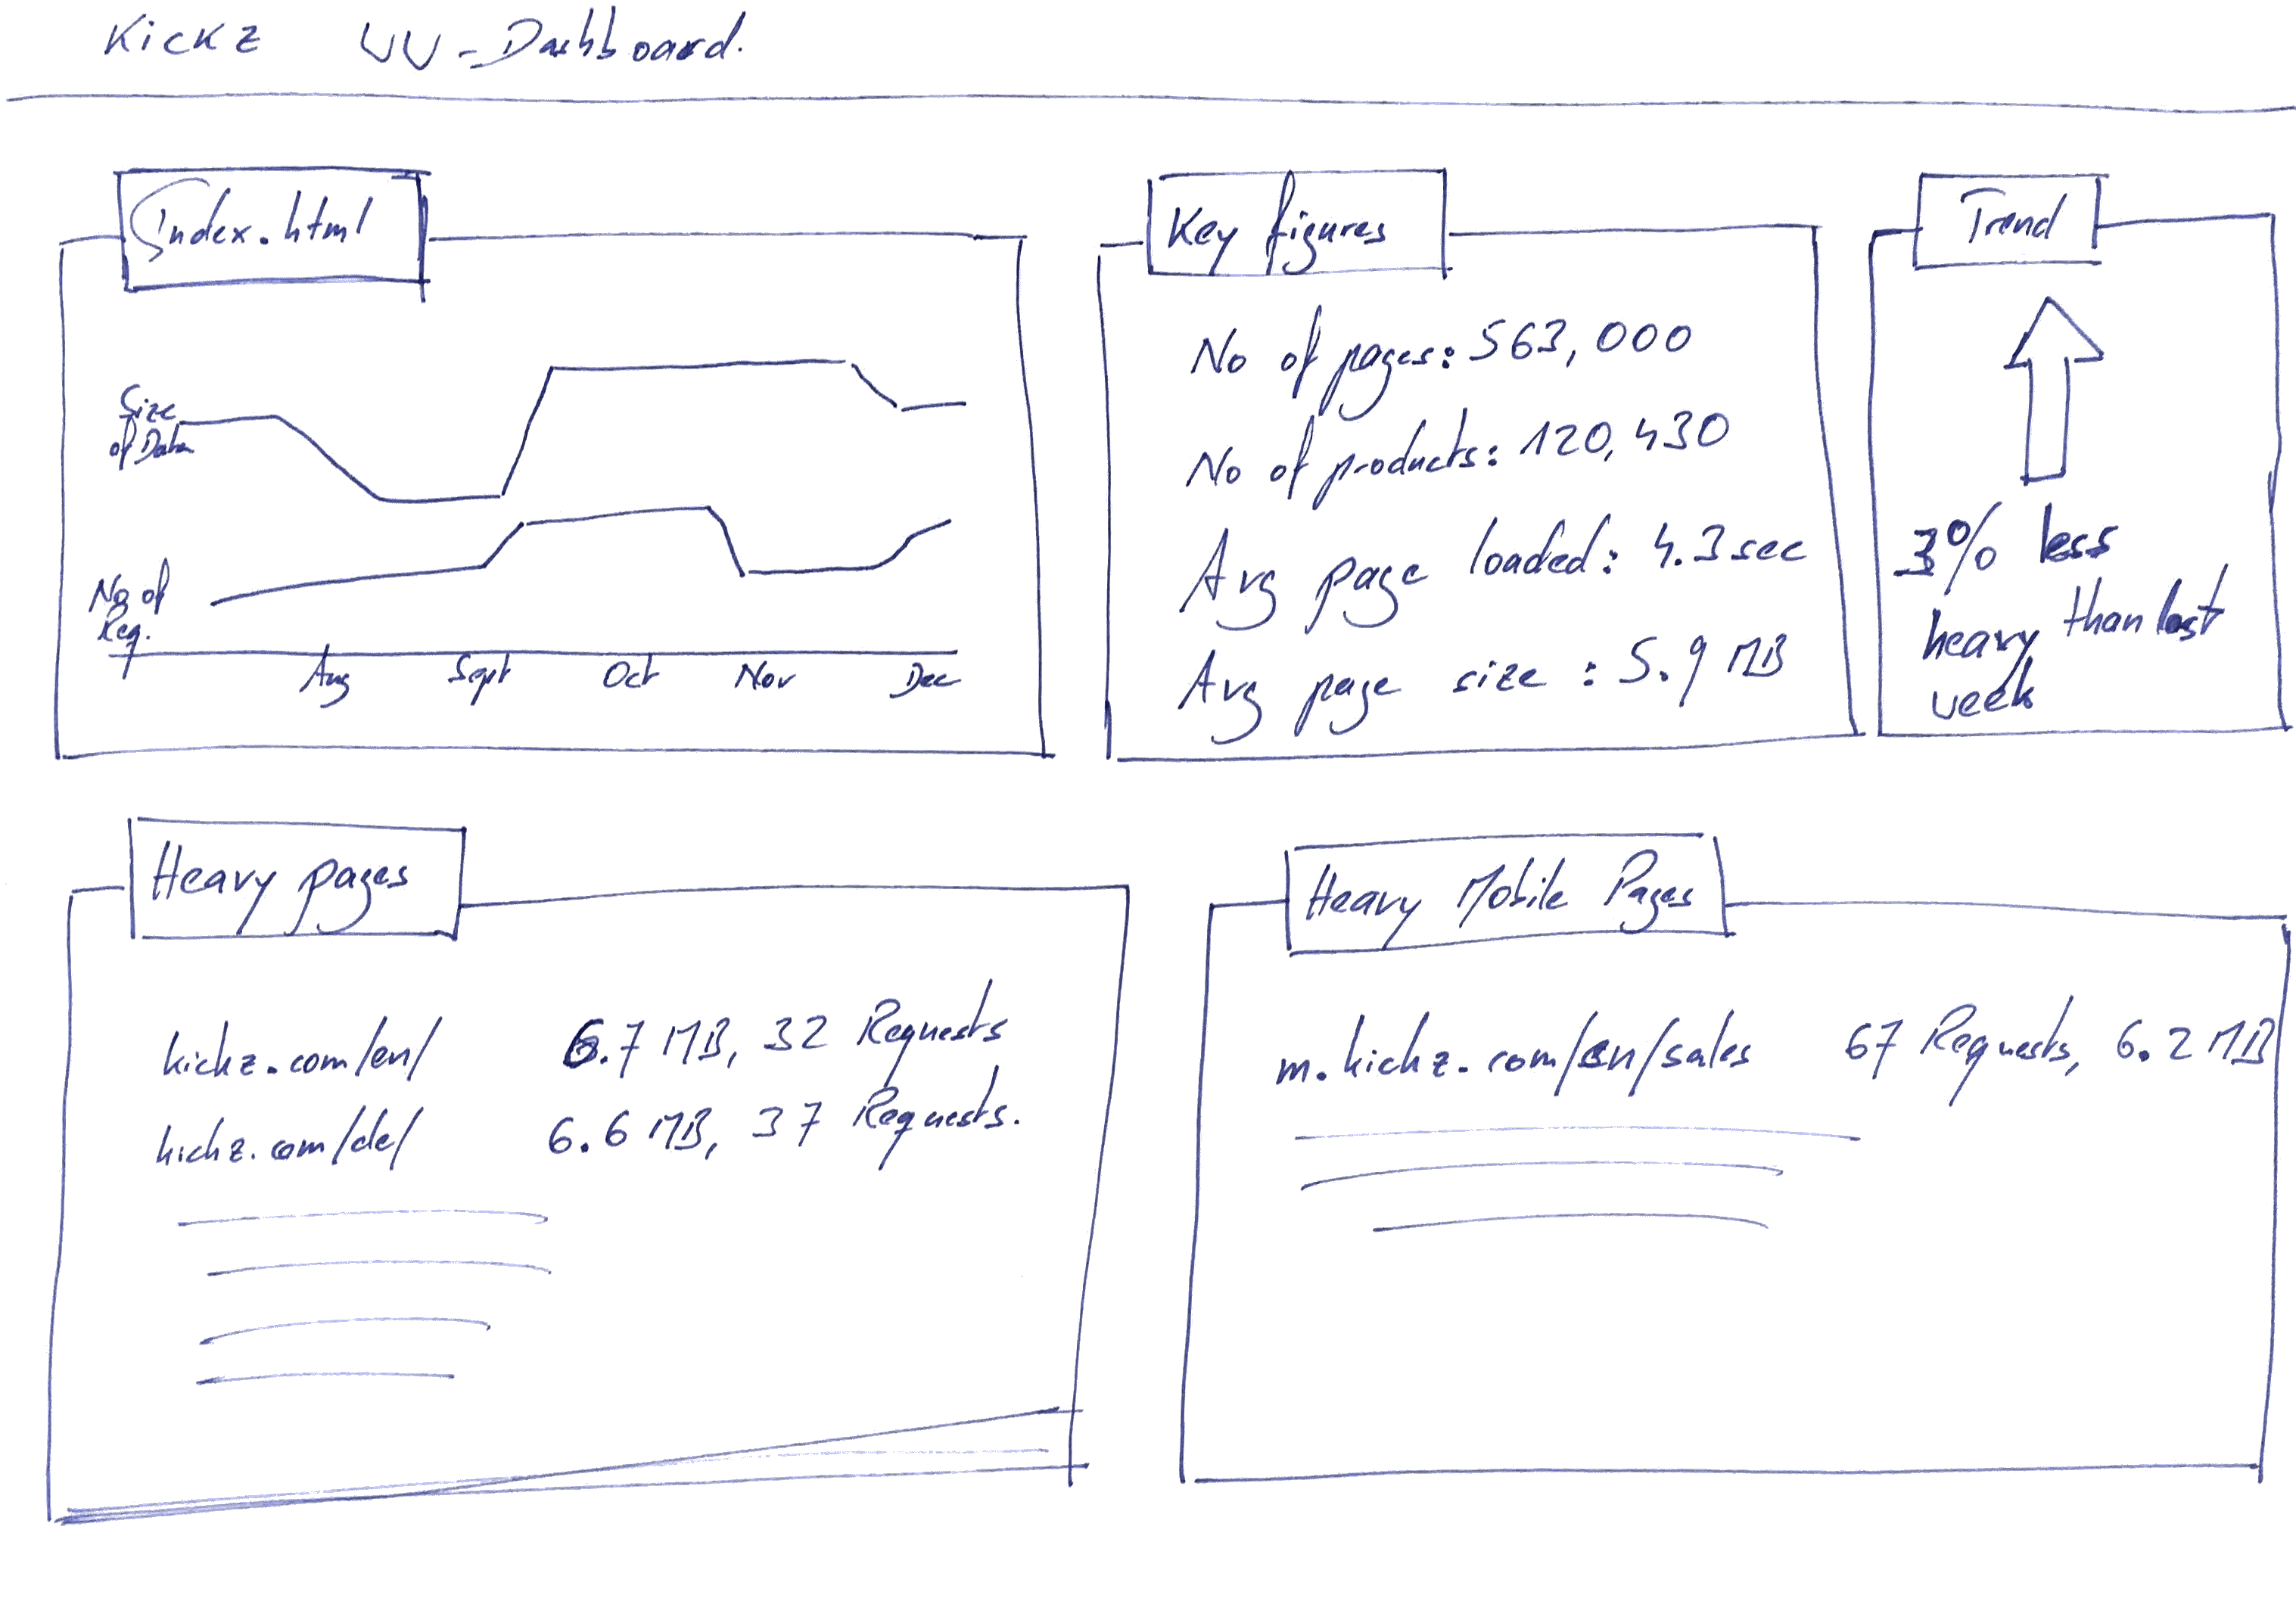 Kickz UU-Dashboard.
Index.html
Size
of Data
No of
Req.
Aug Sept Oct Nov Dec
Key figures
No of pages: 563,000
No of products: 120,430
Avg page loaded: 4.3 sec
Avg page size: 5.9 MB
Trend
3% less
heavy than last
week
Heavy pages
kickz.com/en/ 6.7 MB, 32 Requests
kickz.com/de/ 6.6 MB, 37 Requests.
Heavy Mobile Pages
m.kickz.com/en/sales 67 Requests, 6.2 MB